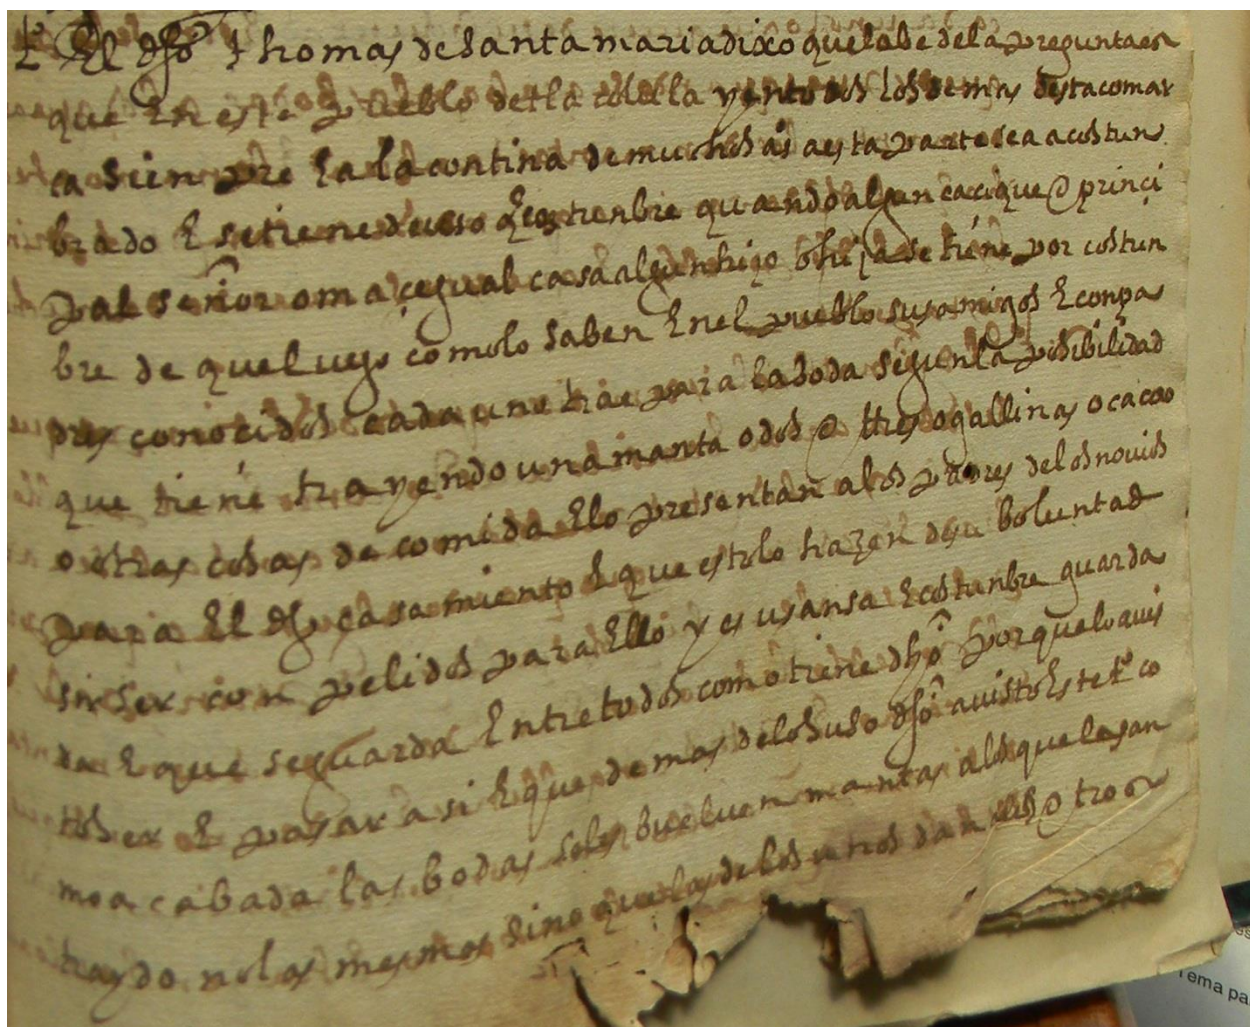 El dho thomas de santa maria dixo que lo que sabe de la pregunta es
que En este pueblo de la y en todos los demas desta comar
ca Sienpre a la contina de muchos años a esta parte se a acostun
brado E se tiene de uso E costunbre quando algun cacique o prinçi
pal señor o maçegual casa algun hijo o hija se tiene por costun
bre de que luego como lo saben En el pueblo sus amigos E conpa
dres conocidos cada uno trae para la boda segun la posibilidad
que tiene trayendo una manta o dos o tres o gallinas o cacao
o otras cosas de comida E lo presentan a los padres de los novios
para El dho casamiento E que esto lo hazen de su boluntad
sin ser conpelidos para Ello y es usansa E costunbre guarda
da E que se guarda Entre todos como tiene dho porque lo a vis
to hazer E pasar asi E que demas de lo suso dho a visto Este tº co
mo acabada las bodas se les buelven mantas a los que les an
traydo no las mesmas sino que las de los unos dan a los otros